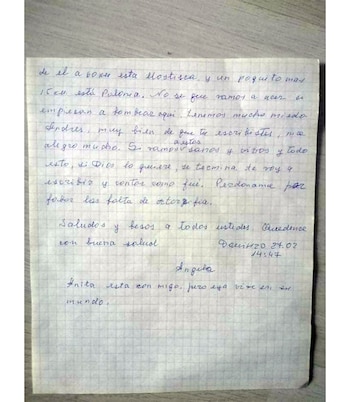 de el a 60 км esta Mostisca, y un poquito mas
15 км está Polonia. No se que vamos a acer si
empesan a bombiar aqui. Tenemos mucho miedo
Andres, muy bien de que te escribistes, me
alegro mucho. Si vamos a estar sanos y vivos y todo
esto, si Dios lo quiere, se termina te voy a
escribir y contar como fue. Perdoname por
fabor las falta de
Saludos y besos a todos ustedes. Quedense
con buena salud 27.02
14:47
Angela
Anita esta con migo, pero eya vive en su
mundo.